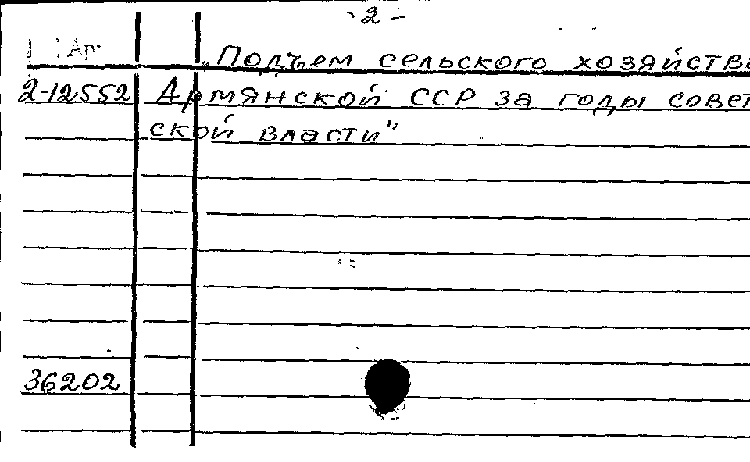 -2-
Ар.
„Подъем сельского хозяйства
2-12552 Армянской ССР за годы совет
ской власти"
36202